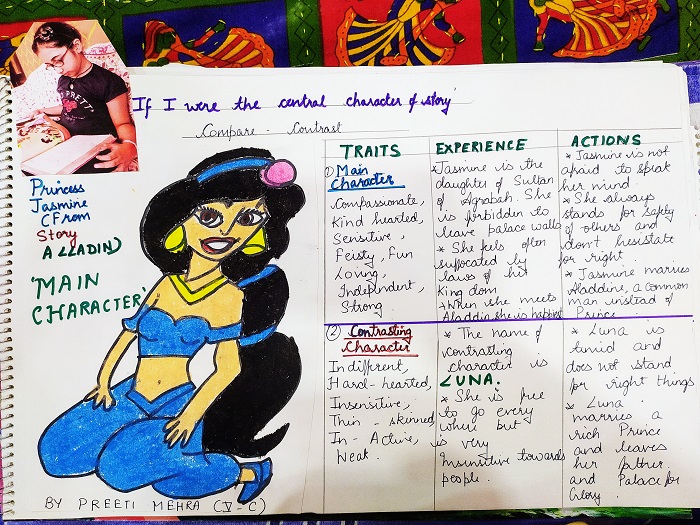 If I were the central character of story
Compare - Contrast
Princess
Jasmine
(From
Story
ALLADIN)
'MAIN
CHARACTER'
BY PREETI MEHRA (V-C)
TRAITS
① Main
Character
Compassionate,
Kind hearted,
Sensitive,
Feisty, Fun
Loving,
Independent,
Strong
EXPERIENCE
* Jasmine is the
daughter of Sultan
of Agrabah. She
is forbidden to
leave palace walls
* She feels often
suffocated by
laws of his
King dom
* When she meets
Aladdin, she is happiest
ACTIONS
* Jasmine is not
afraid to speak
her mind.
* She always
stands for safety
of others and
don't hesistate
for right.
* Jasmine marries
Aladdine, a common
man instead of
Prince
② Contrasting
Character
Indifferent,
Hard-hearted,
Insensitive,
Thin - skinned,
In - Active,
Weak.
* The name of
contrasting
character is
LUNA.
* She is free
to go every
where but
is very
Insensitive towards
people.
* Luna is
timid and
does not stand
for right things
* Luna
marries a
rich Prince
and leaves
her father
and Palace for
Glory.